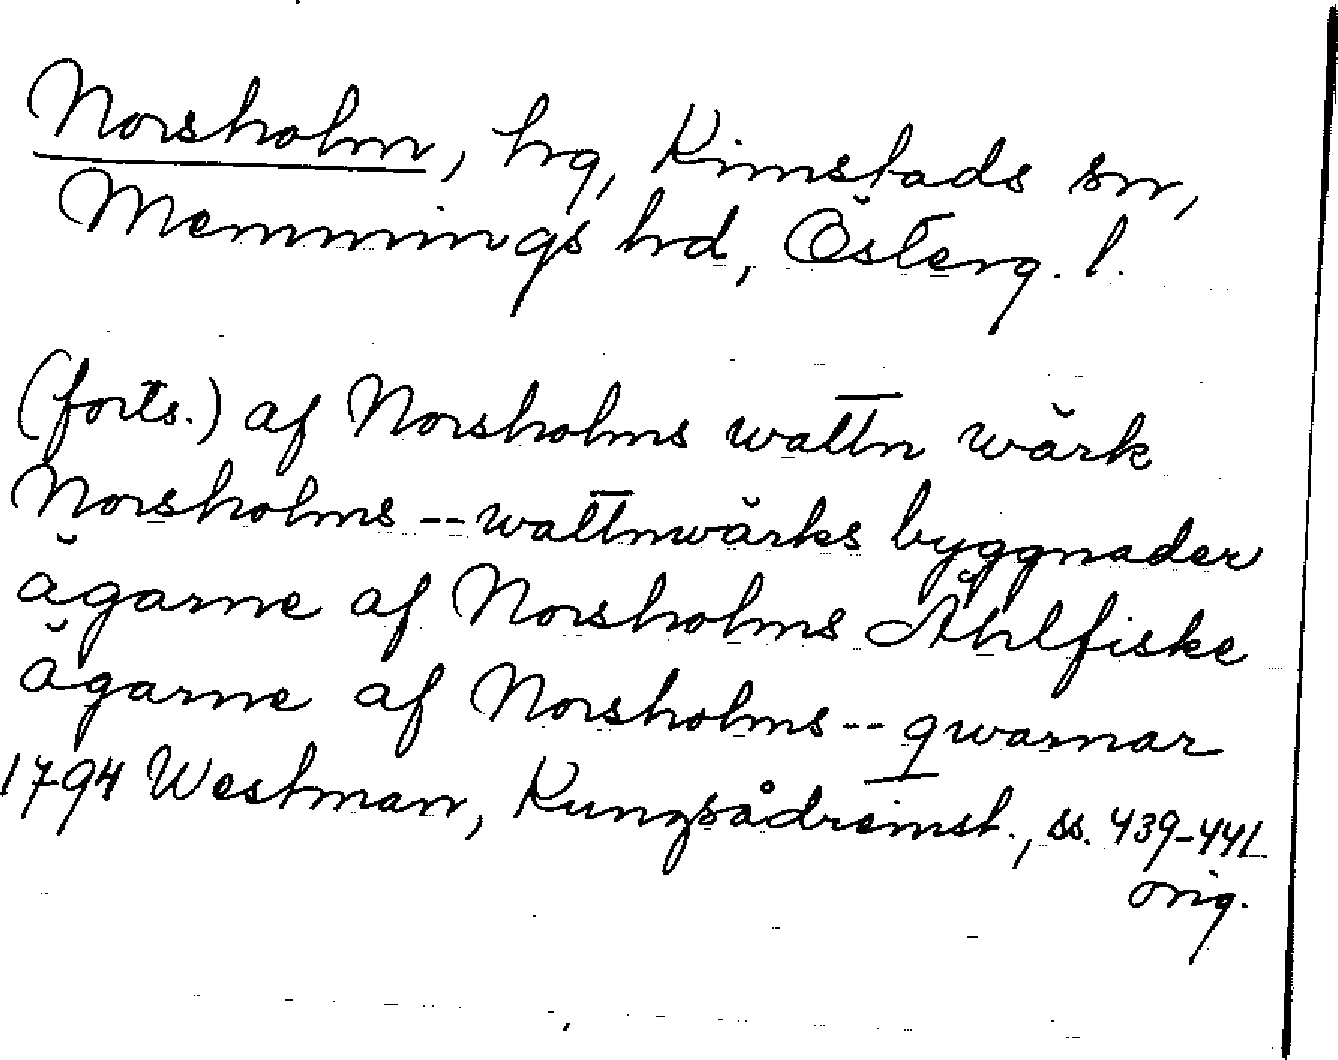 Norsholm, hrg, Kimstads sn,
Memmings hd, Österg. l.
(forts.) af Norsholms wattn wärk
Norsholms -- wattnwärks byggnader
ägarne af Norsholms Åhlfiske
ägarne af Norsholms -- qwarnar
1794 Westman, Kungsådreinst., ss. 439-441
orig.